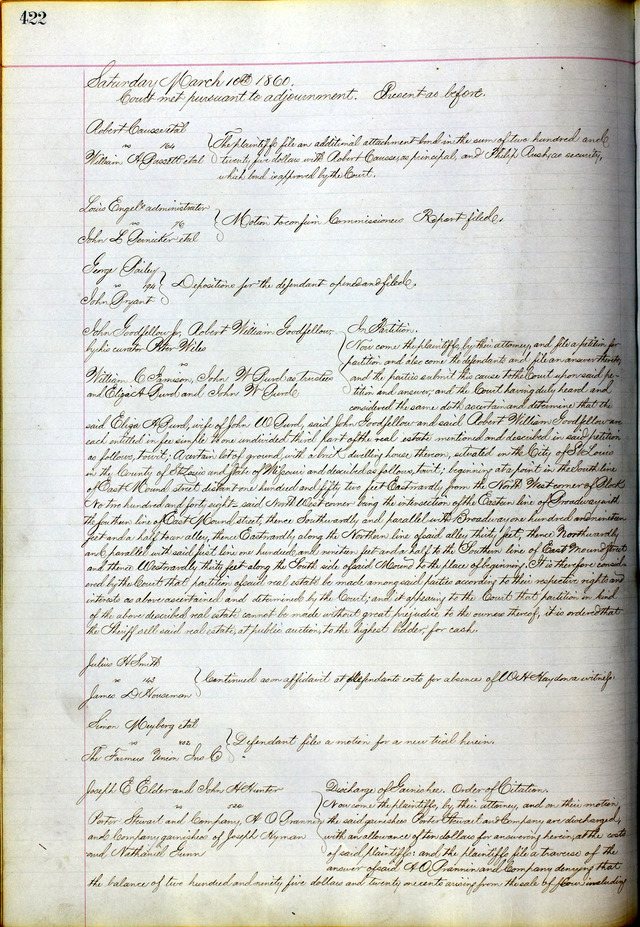 422
Saturday March 10th 1860.
Court met pursuant to adjournment. Present as before.
Robert Causse etal
vs 164
William H Bassett etal
The plaintiffs file an additional attachment bond in the sum of two hundred and
twenty five dollars with Robert Causse, as principal, and Philip Rush, as security,
which bond is approved by the Court.
Louis Engel's administrator
vs
John L etal
Motion to confirm Commissioners Report filed.
George Bailey
vs 194
John Bryant
Depositions for the defendant opened and filed.
John Goodfellow Jr, Robert William Goodfellow,
by his curator Peter Wiles
vs
William C Jamison, John W Burd as trustees
and Eliza A Burd and John W Burd
In Partition.
Now come the plaintiffs, by their attorney, and file a petition for
partition and also come the defendants and file an answer thereto,
and the parties submit this cause to the Court upon said pe-
tition and answer; and the Court having duly heard and
considered the same doth ascertain and determine that the
said Eliza A Burd, wife of John W Burd, said John Goodfellow and said Robert William Goodfellow are
each entitled in fee simple to one undivided third part of the real estate mentioned and described in said petition
as follows, towit; A certain lot of ground, with a brick dwelling house thereon, situated in the City of St Louis
in the County of St Louis and State of Missouri and described as follows, towit; beginning at a point in the South line
of East Mound street distant one hundred and fifty two feet Eastwardly from the North West corner of Block
No two hundred and forty eight said North West corner being the intersection of the Eastern line of Broadway with
the Southern line of East Mound street, thence Southwardly and parallel with Broadway one hundred and nineteen
feet and a half to an alley, thence Eastwardly along the Northern line of said alley thirty feet, thence Northwardly
and parallel with said first line one hundred and nineteen feet and a half to the Southern line of East Mound Street
and thence Westwardly thirty feet along the South side of said Mound to the place of beginning. It is therefore consid-
ered by the Court that partition of said real estate be made among said parties according to their respective rights and
interests as above ascertained and determined by the Court; and it appearing to the Court that partition in kind
of the above described real estate cannot be made without great prejudice to the owners thereof, it is ordered that
the Sheriff sell said real estate, at public auction, to the highest bidder, for cash.
Julius H Smith
vs 163
James D Houseman
Continued as on affidavit at defendants costs for absence of W H Haydon a witness.
Simon Myberg etal
vs 802
The Farmers Union Ins Co
Defendant files a motion for a new trial herein.
Joseph E Elder and John H Hunter
vs 520
Porter Stewart and Company, H O Brannin
and Company garnishees of Joseph Hyman
and Nathaniel Gunn
Discharge of Garnishee. Order of Citation.
Now come the plaintiffs, by their attorney, and on their motion,
the said garnishees Porter Stewart and Company are discharged,
with an allowance of ten dollars for answering herein, at the costs
of said plaintiffs: and the plaintiffs file a traverse of the
answer of said H O Brannin and Company denying that
the balance of two hundred and ninety five dollars and twenty one cents arising from the sale of flour including